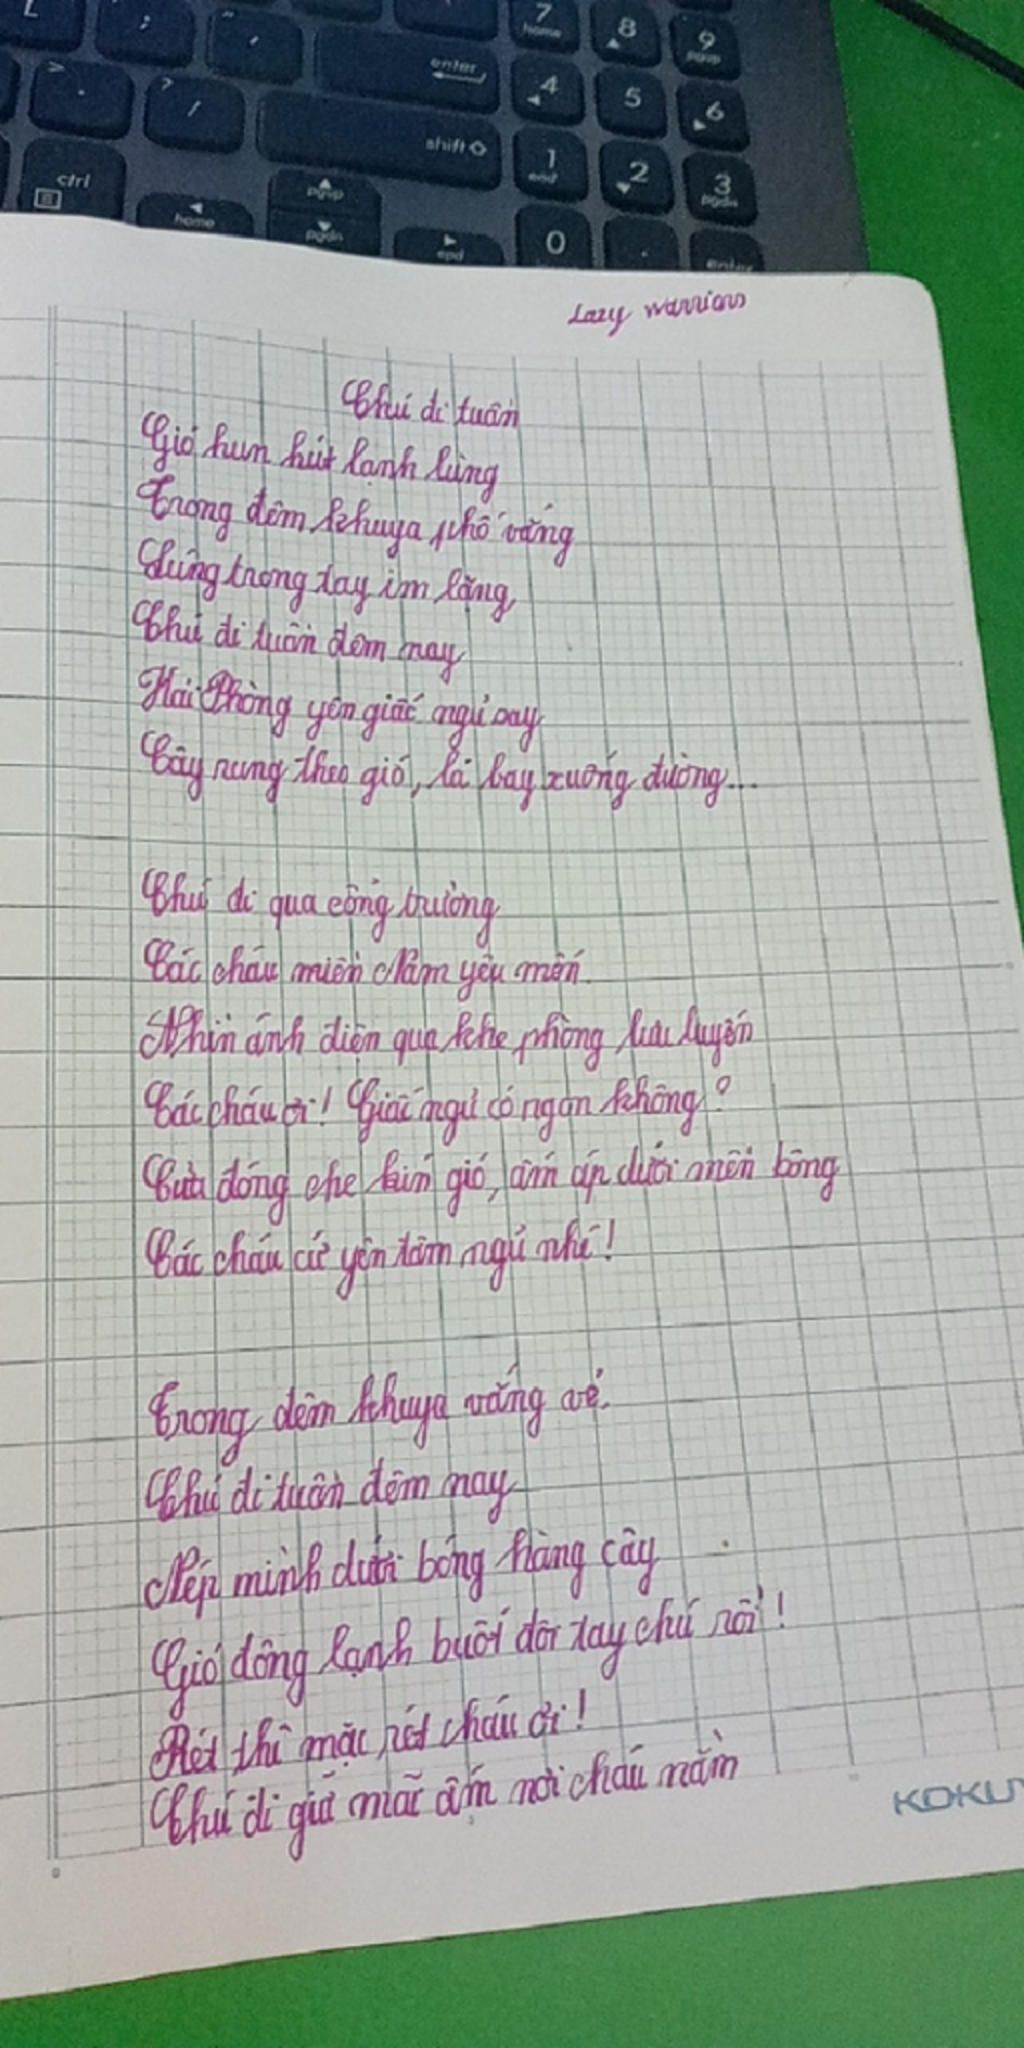 [
;
"
'
enter
>
.
?
/
shift
ctrl
home
pgup
pgdn
end
7
home
8
9
pgup
4
5
6
1
end
2
3
pgdn
0
.
enter
Lazy warriors
Chú đi tuần
Gió hun hút lạnh lùng
Trong đêm khuya phố vắng
Súng trong tay im lặng,
Chú đi tuần đêm nay
Hải Phòng yên giấc ngủ say
Cây rung theo gió, lá bay xuống đường...
Chú đi qua cổng trường
Các cháu miền Nam yêu mến.
Nhìn ánh điện qua khe phòng lưu luyến
Các cháu ơi! Giấc ngủ có ngon không?
Cửa đóng che kín gió, ấm áp dưới mền bông
Các cháu cứ yên tâm ngủ nhé!
Trong đêm khuya vắng vẻ.
Chú đi tuần đêm nay
Nép mình dưới bóng hàng cây
Gió đông lạnh buốt đôi tay chú rồi!
Rét thì mặc rét cháu ơi!
Chú đi giữ mãi ấm nơi cháu nằm